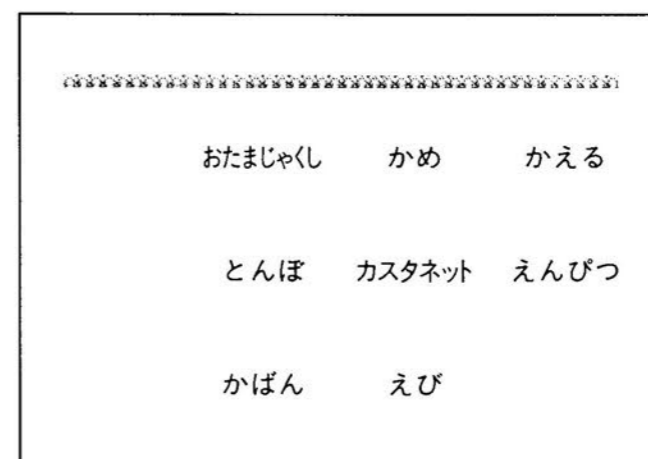 おたまじゃくし かめ かえる
とんぼ カスタネット えんぴつ
かばん えび